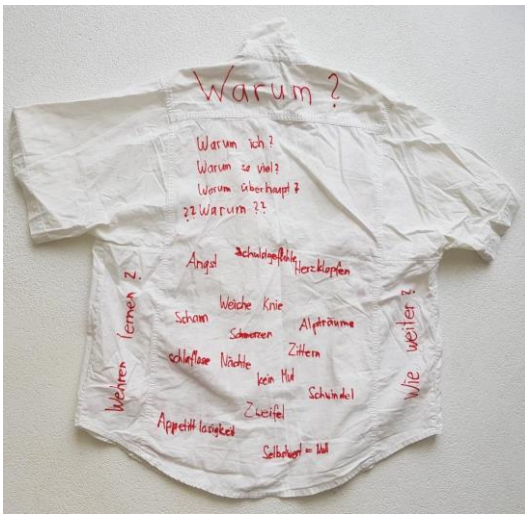 Warum?
Warum ich?
Warum so viel?
Warum überhaupt?
?? Warum ??
Angst Schuldgefühle Herzklopfen
Weiche Knie
Scham Schmerzen Alpträume
schlaflose Nächte Zittern
kein Mut
Schwindel
Zweifel
Appetitlosigkeit
Selbstwert = Null
Wehren lernen?
Wie weiter?